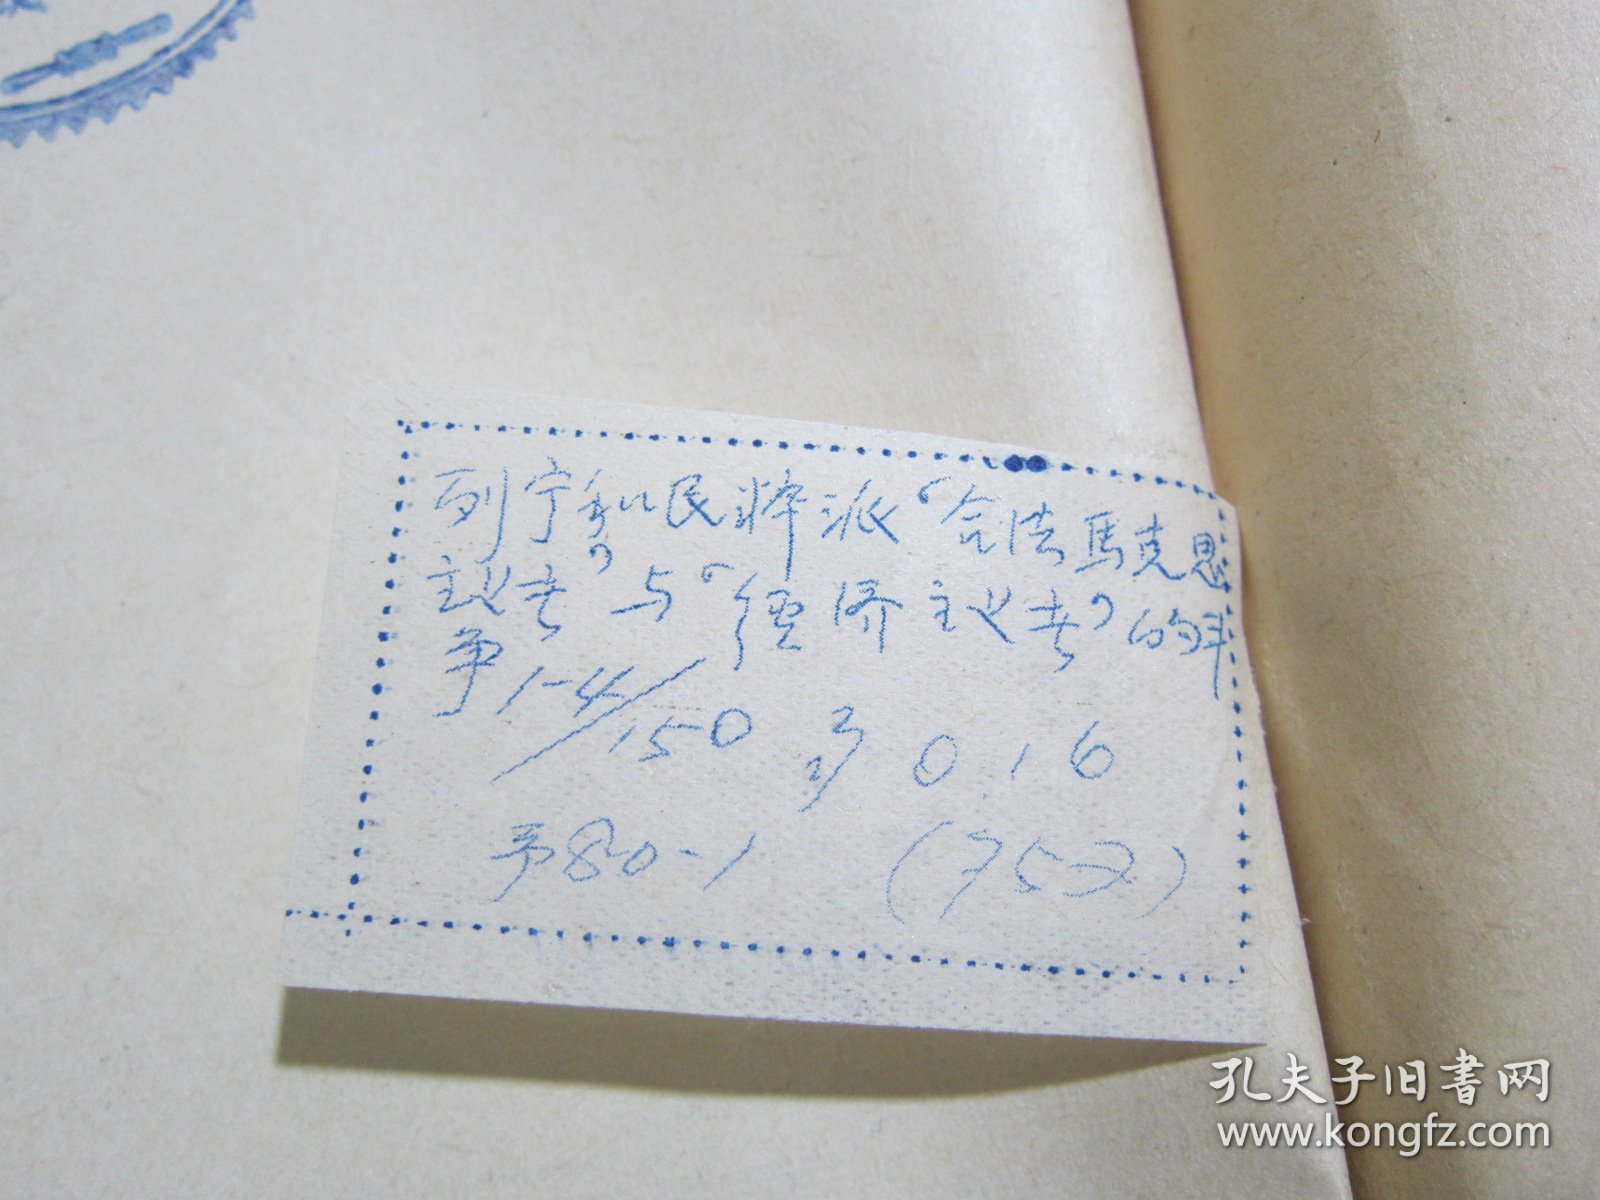 列宁和民粹派“合法馬克思
主义者”与“經济主义者”的斗
争 1-4/150 罗 0.16
予80-1 (752)
孔夫子旧書网
www.kongfz.com